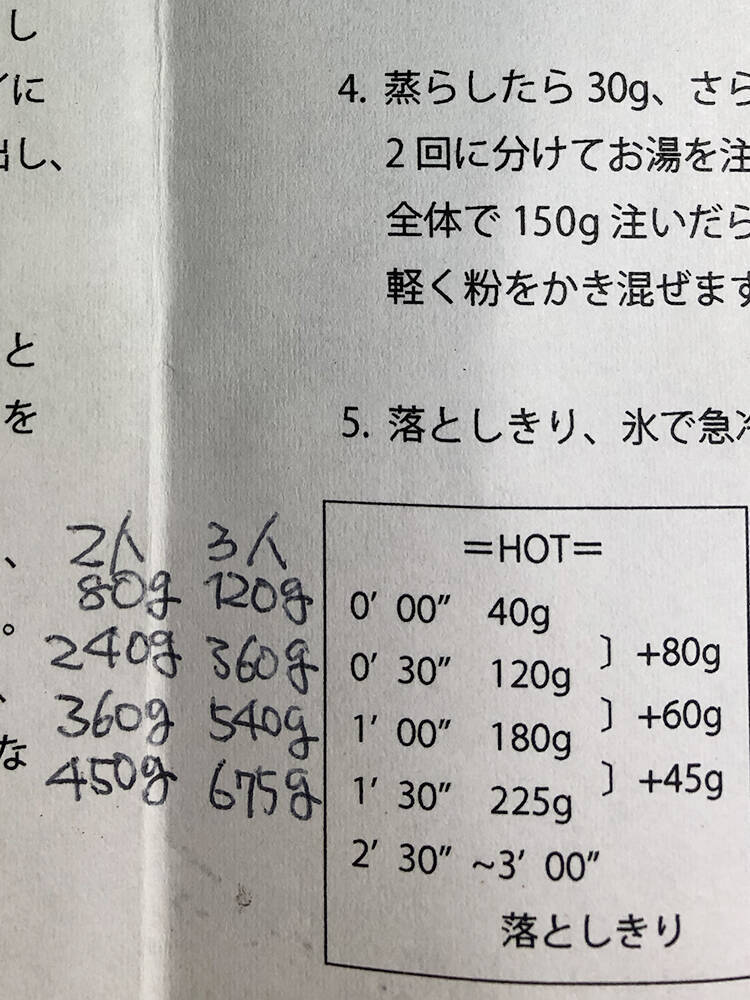 し
に
出し、
と
を
、
。
、
な
4. 蒸らしたら 30g、さら
2 回に分けてお湯を注
全体で 150g 注いだら
軽く粉をかき混ぜます
5. 落としきり、氷で急冷
2人 3人
80g 120g
240g 360g
360g 540g
450g 675g
=HOT=
0′ 00″ 40g
0′ 30″ 120g 〕+80g
1′ 00″ 180g 〕+60g
1′ 30″ 225g 〕+45g
2′ 30″ ~3′ 00″
落としきり